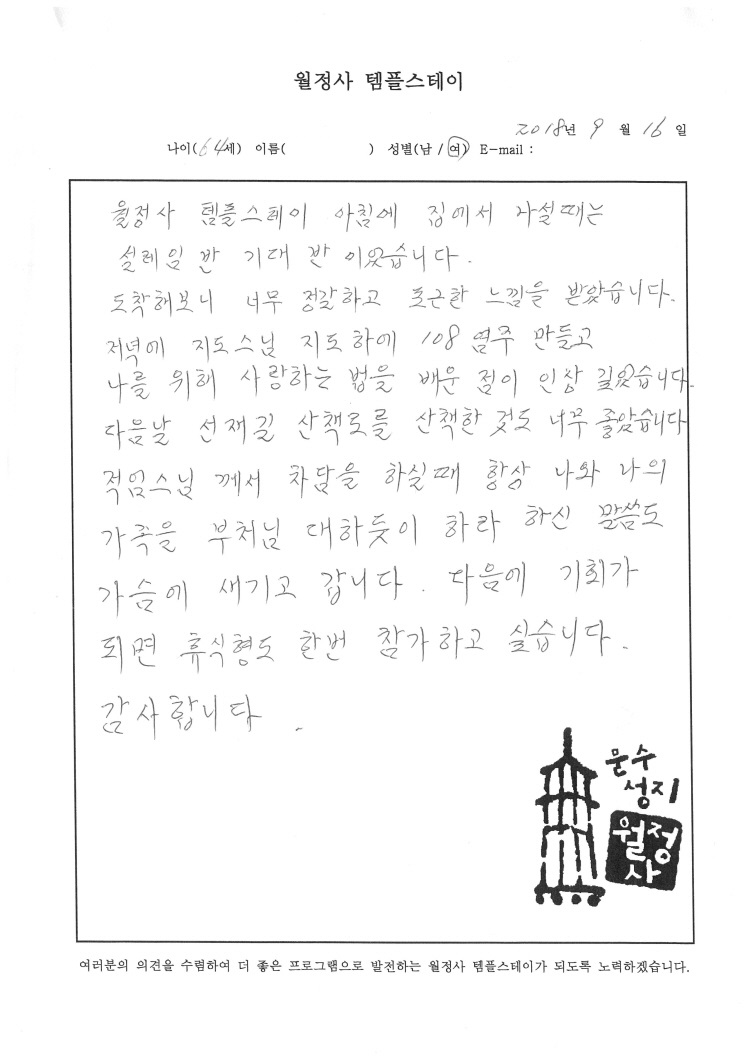 월정사 템플스테이
2018년 9 월 16 일
나이(64세) 이름( ) 성별(남 / 여) E-mail :
월정사 템플스테이 아침에 집에서 나설때는
설레임 반 기대 반 이었습니다.
도착해보니 너무 정갈하고 포근한 느낌을 받았습니다.
저녁에 지도스님 지도하에 108 염주 만들고
나를 위해 사랑하는 법을 배운 점이 인상 깊었습니다.
다음날 선재길 산책로를 산책한 것도 너무 좋았습니다
적엄스님 께서 차담을 하실때 항상 나와 나의
가족을 부처님 대하듯이 하라 하신 말씀도
가슴에 새기고 갑니다. 다음에 기회가
되면 휴식형도 한번 참가하고 싶습니다.
감사합니다.
문수
성지
월정
사
여러분의 의견을 수렴하여 더 좋은 프로그램으로 발전하는 월정사 템플스테이가 되도록 노력하겠습니다.